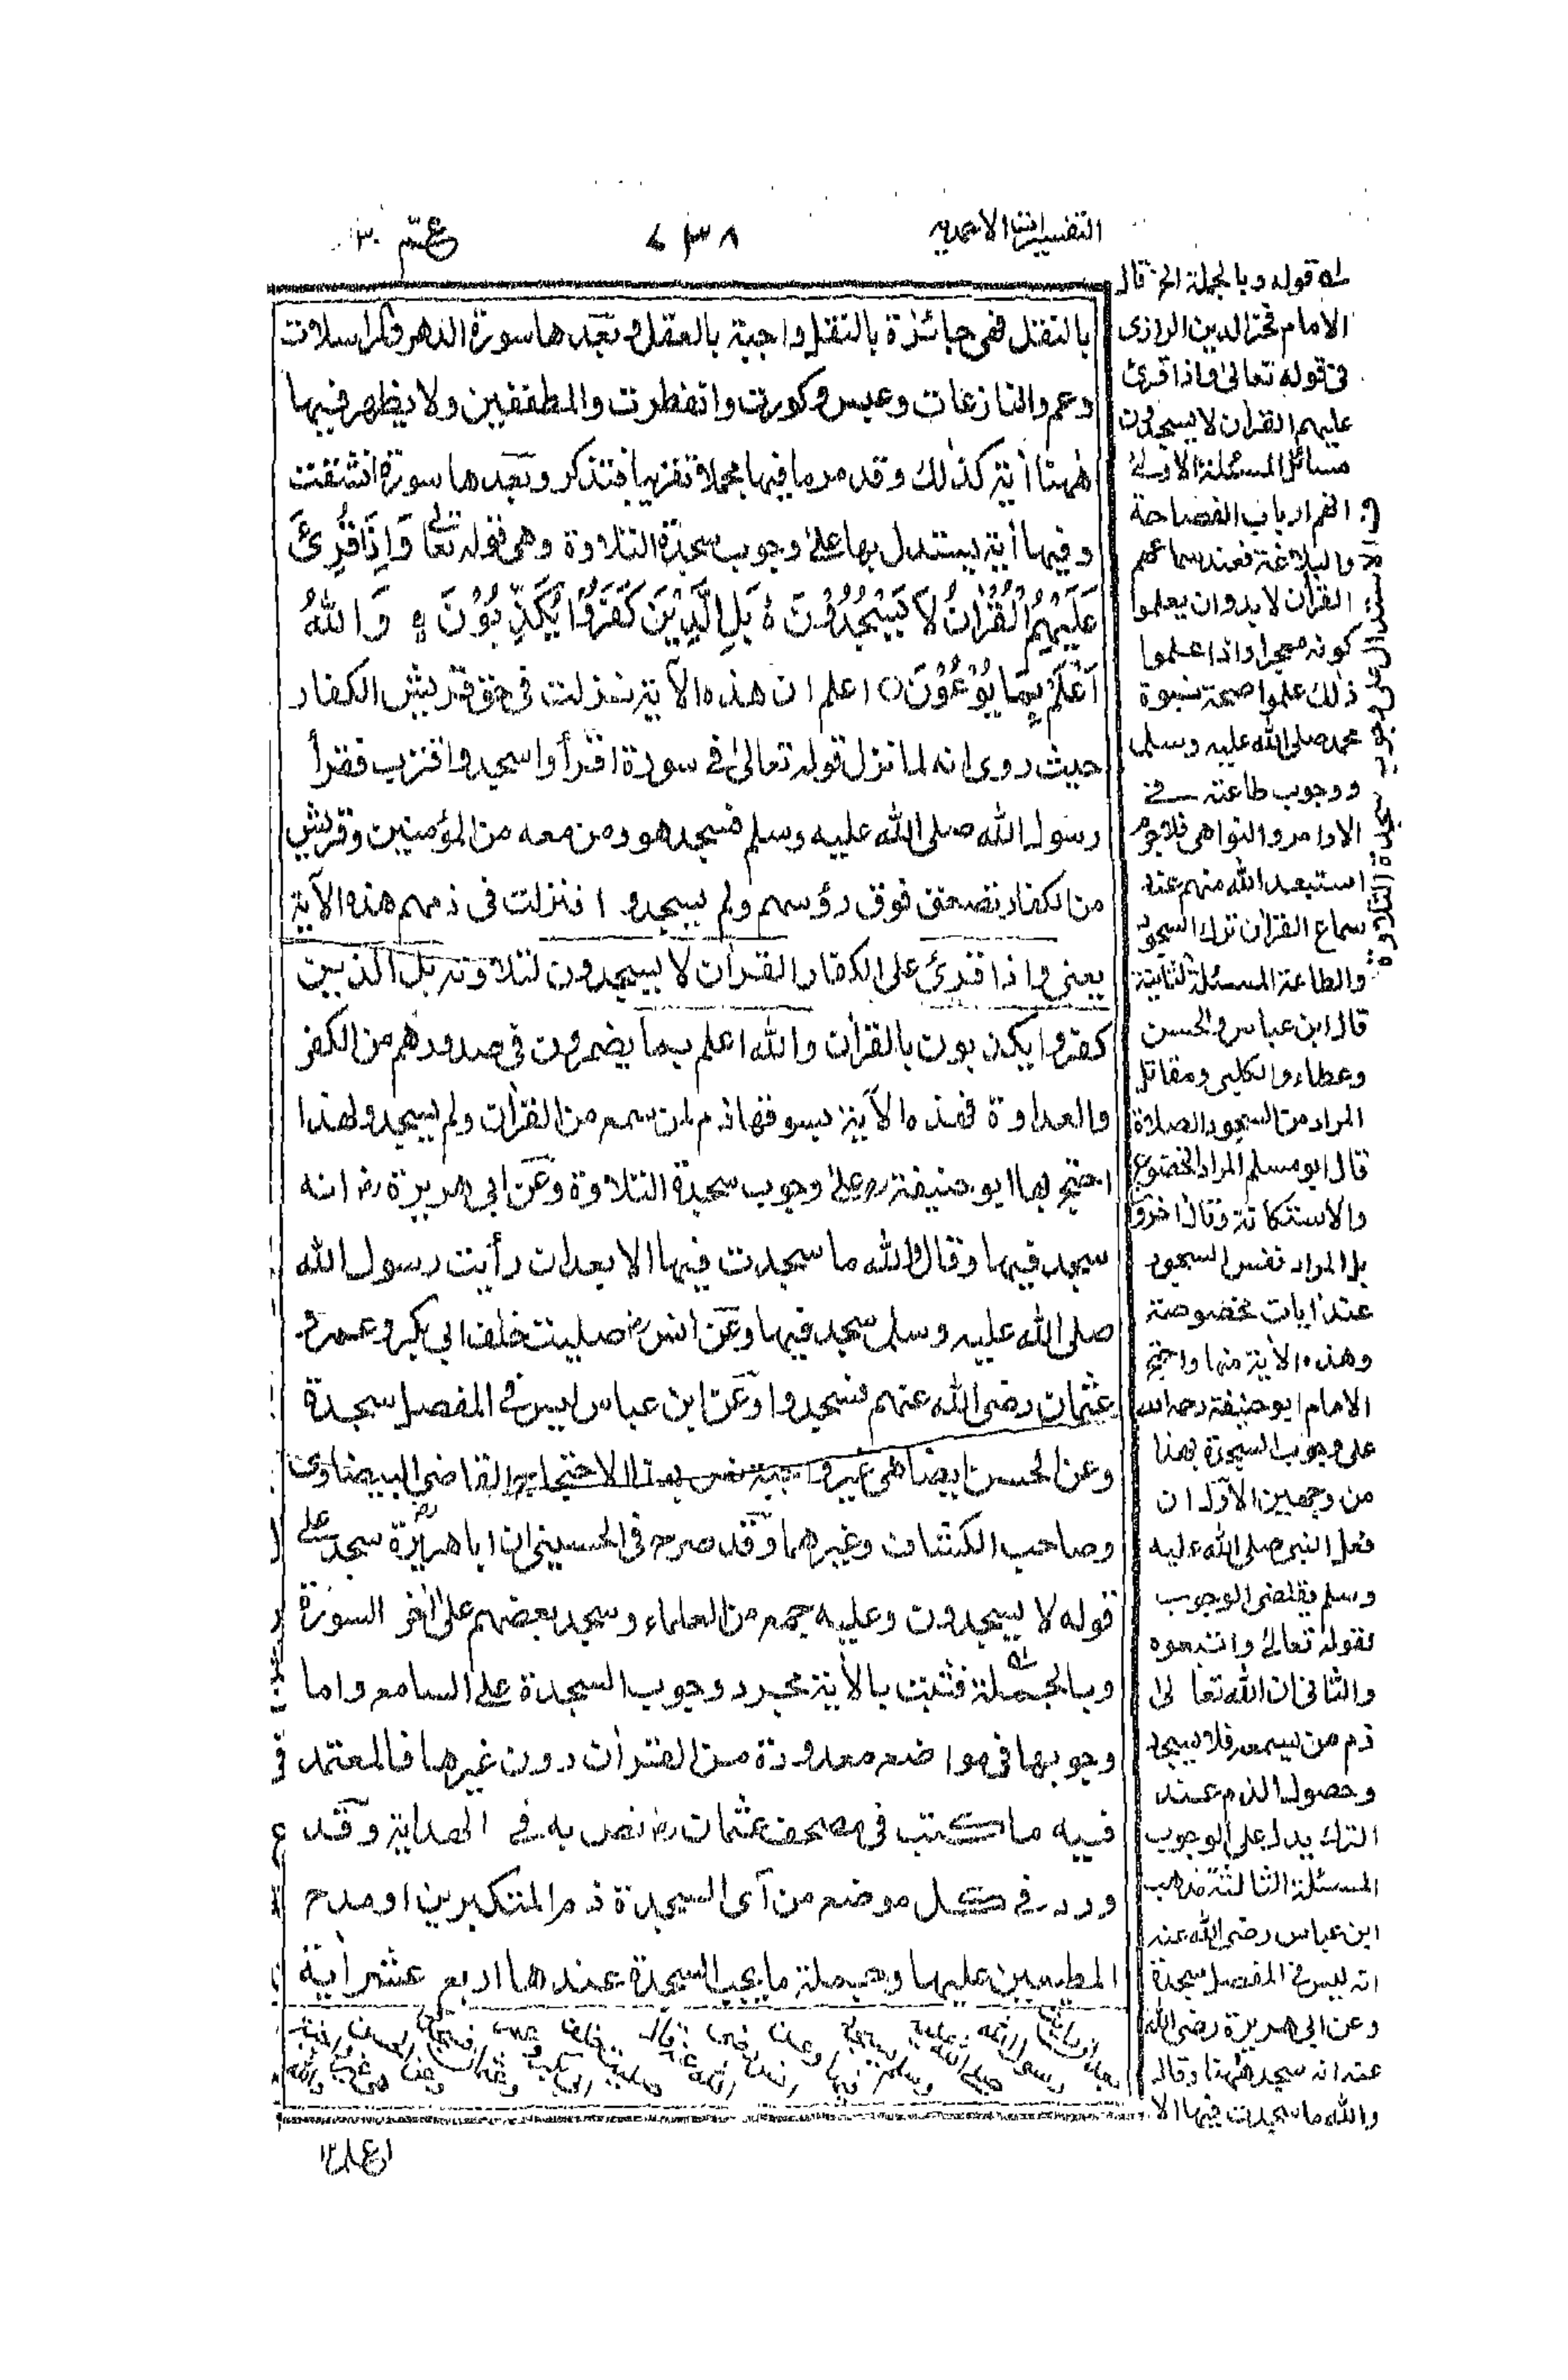 التفسيرات الاحمديه
٧٣٨
عم ٣٠
بالنقل فهى جائزة بالنقل واجبة بالعقل وبعدها سورة الدهر والمرسلات
وعم والنازعات وعبس وكورت وانفطرت والمطففين ولا يظهر فيها
ههنا أية كذلك وقد مر ما فيها مجملا وتقريبا فتذكر وبعدها سورة انشقت
وفيها أية يستدل بها على وجوب سجدة التلاوة وهى قوله تعالى وَاِذَا قُرِئَ
عَلَيْهِمُ الْقُرْاٰنُ لَا يَسْجُدُوْنَ ۩ بَلِ الَّذِيْنَ كَفَرُوْا يُكَذِّبُوْنَ ۝ وَاللّٰهُ
اَعْلَمُ بِمَا يُوْعُوْنَ ○ اعلم ان هذه الآية نزلت فى حق قريش الكفار
حيث روى انه لما نزل قوله تعالى فى سورة اقرأ واسجد واقترب فقرأ
رسول الله صلى الله عليه وسلم فسجد هو ومن معه من المؤمنين وقريش
من الكفار تصفق فوق رؤسهم ولم يسجدوا فنزلت فى ذمهم هذه الآية
يعنى واذا قرئ على الكفار القران لا يسجدون لتلاوته بل الذين
كفروا يكذبون بالقران والله اعلم بما يضمرون فى صدورهم من الكفر
والعداوة فهذه الآية بسوقها ذم لمن سمع من القران ولم يسجد ولهذا
احتج بها ابو حنيفة رح على وجوب سجدة التلاوة وعن ابى هريرة رض انه
سجد فيها وقال والله ما سجدت فيها الا بعد ان رأيت رسول الله
صلى الله عليه وسلم سجد فيها وعن انس رض صليت خلف ابى بكر وعمر و
عثمان رضى الله عنهم فسجدوا وعن ابن عباس ليس فى المفصل سجدة
وعن الحسن ايضا هى غير واجبة نص بهذا الاحتجاج القاضى البيضاوى
وصاحب الكشاف وغيرهما وقد صرح فى الحسينى ان ابا هريرة رض سجد على
قوله لا يسجدون وعليه جمع من العلماء وسجد بعضهم على أخر السورة
وبالجملة فثبت بالأية مجرد وجوب السجدة على السامع واما
وجوبها فى مواضع معدودة من القران دون غيرها فالمعتمد
فيه ما كتب فى مصحف عثمان رض نص به فى الهداية وقد
ورد فى كل موضع من آى السجدة ذم المتكبرين او مدح
المطيعين عليها وجملة ما يجب السجدة عندها اربع عشر أية
له قوله وبالجملة الخ قال
الامام فخر الدين الرازى
فى قوله تعالى واذا قرئ
عليهم القران لا يسجدون
مسائل المسئلة الاولى
انهم ارباب الفصاحة
والبلاغة فعند سماعهم
القران لا بد وان يعلموا
كونه معجزا واذا علموا
ذلك علموا صحة نبوة
محمد صلى الله عليه وسلم
ووجوب طاعته فى
الاوامر والنواهى فلا جرم
استبعد الله منهم عند
سماع القران ترك السجود
والطاعة المسئلة الثانية
قال ابن عباس والحسن
وعطاء والكلبى ومقاتل
المراد من السجود الصلاة
قال ابو مسلم المراد الخضوع
والاستكانة وقال اخرون
بل المراد نفس السجود
عند ايات مخصوصة
وهذه الأية منها واحتج
الامام ابو حنيفة رحمه الله
على وجوب السجدة بهذا
من وجهين الاول ان
فعل النبى صلى الله عليه
وسلم يقتضى الوجوب
لقوله تعالى واتبعوه
والثانى ان الله تعالى
ذم من يسمعه فلا يسجد
وحصول الذم عند
الترك يدل على الوجوب
المسئلة الثالثة مذهب
ابن عباس رضى الله عنه
انه ليس فى المفصل سجدة
وعن ابى هريرة رضى الله
عنه انه سجد ههنا وقال
والله ما سجدت فيها الا
بعد ان رأيت رسول الله صلى الله عليه وسلم سجد فيها وعن انس رضى الله عنه قال صليت خلف ابى بكر وعمر وعثمان فسجدوا وعن الحسن هى غير واجبة والله